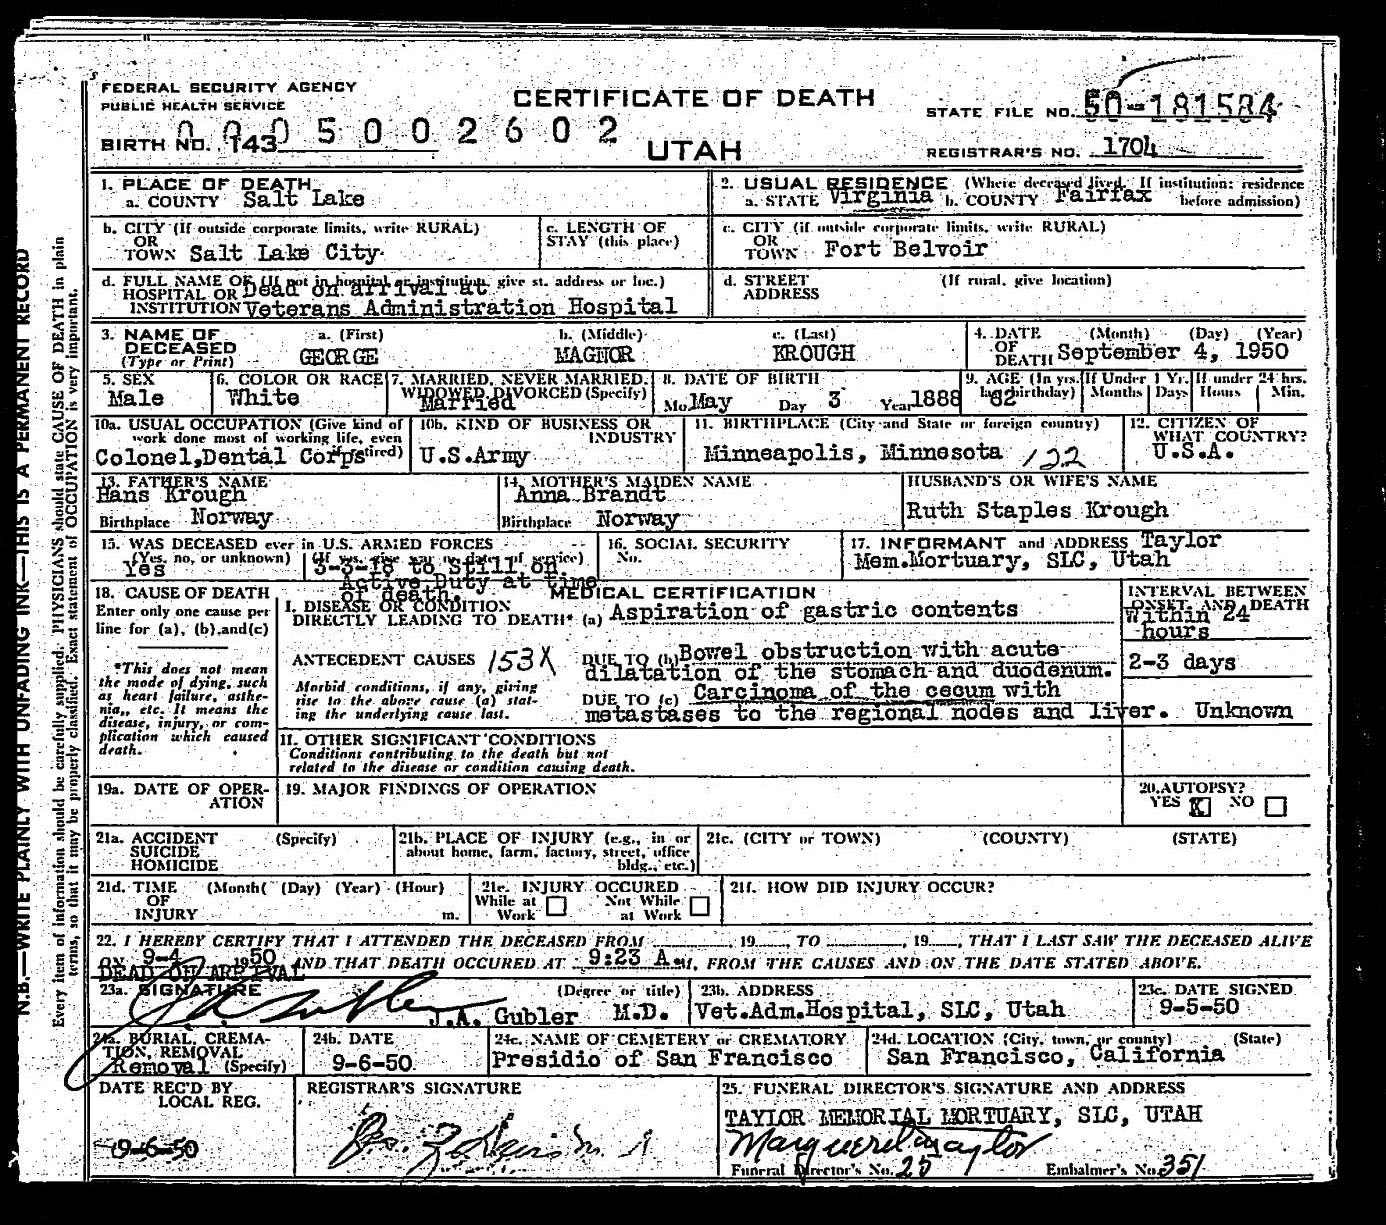 FEDERAL SECURITY AGENCY
PUBLIC HEALTH SERVICE
CERTIFICATE OF DEATH
STATE FILE NO. 50-181584
0005002602
BIRTH NO. 143
UTAH
REGISTRAR'S NO. 1704
1. PLACE OF DEATH
a. COUNTY Salt Lake
2. USUAL RESIDENCE (Where deceased lived. If institution: residence before admission)
a. STATE Virginia b. COUNTY Fairfax
b. CITY (If outside corporate limits, write RURAL)
OR
TOWN Salt Lake City
c. LENGTH OF
STAY (this place)
c. CITY (if outside corporate limits, write RURAL)
OR
TOWN Fort Belvoir
d. FULL NAME OF (If not in hospital or institution, give st. address or loc.)
HOSPITAL OR Dead on arrival at
INSTITUTION Veterans Administration Hospital
d. STREET (If rural, give location)
ADDRESS
3. NAME OF DECEASED
(Type or Print)
a. (First) b. (Middle) c. (Last)
GEORGE MAGNOR KROUGH
4. DATE (Month) (Day) (Year)
OF
DEATH September 4, 1950
5. SEX
Male
6. COLOR OR RACE
White
7. MARRIED, NEVER MARRIED,
WIDOWED, DIVORCED (Specify)
Married
8. DATE OF BIRTH
Mo. May Day 3 Year 1888
9. AGE (In yrs. last birthday) 62
If Under 1 Yr.
Months Days
If under 24 hrs.
Hours Min.
10a. USUAL OCCUPATION (Give kind of
work done most of working life, even
if retired)
Colonel, Dental Corps
10b. KIND OF BUSINESS OR
INDUSTRY
U.S.Army
11. BIRTHPLACE (City and State or foreign country)
Minneapolis, Minnesota 122
12. CITIZEN OF
WHAT COUNTRY?
U.S.A.
13. FATHER'S NAME
Hans Krough
Birthplace Norway
14. MOTHER'S MAIDEN NAME
Anna Brandt
Birthplace Norway
HUSBAND'S OR WIFE'S NAME
Ruth Staples Krough
15. WAS DECEASED ever in U.S. ARMED FORCES
(Yes, no, or unknown) (If yes, give war or dates of service)
Yes 3-3-18 to still on
Active Duty at time
of death.
16. SOCIAL SECURITY
No.
17. INFORMANT and ADDRESS Taylor
Mem.Mortuary, SLC, Utah
18. CAUSE OF DEATH
Enter only one cause per
line for (a), (b),and(c)
*This does not mean
the mode of dying, such
as heart failure, asthe-
nia,, etc. It means the
disease, injury, or com-
plication which caused
death.
MEDICAL CERTIFICATION
I. DISEASE OR CONDITION
DIRECTLY LEADING TO DEATH* (a) Aspiration of gastric contents
ANTECEDENT CAUSES 153X
Morbid conditions, if any, giving
rise to the above cause (a) stat-
ing the underlying cause last.
DUE TO (b) Bowel obstruction with acute
dilatation of the stomach and duodenum.
DUE TO (c) Carcinoma of the cecum with
metastases to the regional nodes and liver. Unknown
INTERVAL BETWEEN
ONSET AND DEATH
Within 24
hours
2-3 days
II. OTHER SIGNIFICANT CONDITIONS
Conditions contributing to the death but not
related to the disease or condition causing death.
19a. DATE OF OPER-
ATION
19. MAJOR FINDINGS OF OPERATION
20. AUTOPSY?
YES X NO
21a. ACCIDENT (Specify)
SUICIDE
HOMICIDE
21b. PLACE OF INJURY (e.g., in or
about home, farm, factory, street, office
bldg., etc.)
21c. (CITY or TOWN) (COUNTY) (STATE)
21d. TIME (Month( (Day) (Year) (Hour)
OF
INJURY m.
21e. INJURY OCCURED
While at Work Not While at Work
21f. HOW DID INJURY OCCUR?
22. I HEREBY CERTIFY THAT I ATTENDED THE DECEASED FROM 19 , TO , 19 , THAT I LAST SAW THE DECEASED ALIVE
ON 9-4 1950 AND THAT DEATH OCCURED AT 9:23 A.M, FROM THE CAUSES AND ON THE DATE STATED ABOVE.
DEAD ON ARRIVAL
23a. SIGNATURE (Degree or title)
J.A. Gubler M.D.
23b. ADDRESS
Vet.Adm.Hospital, SLC, Utah
23c. DATE SIGNED
9-5-50
24a. BURIAL, CREMA-
TION, REMOVAL
Removal (Specify)
24b. DATE
9-6-50
24c. NAME OF CEMETERY or CREMATORY
Presidio of San Francisco
24d. LOCATION (City, town, or county) (State)
San Francisco, California
DATE REC'D BY
LOCAL REG.
9-6-50
REGISTRAR'S SIGNATURE
25. FUNERAL DIRECTOR'S SIGNATURE AND ADDRESS
TAYLOR MEMORIAL MORTUARY, SLC, UTAH
Marguerite Taylor
Funeral Director's No. 25 Embalmer's No. 351
N.B.—WRITE PLAINLY WITH UNFADING INK—THIS IS A PERMANENT RECORD
Every item of information should be carefully supplied. PHYSICIANS should state CAUSE OF DEATH in plain
terms, so that it may be properly classified. Exact statement of OCCUPATION is very important.